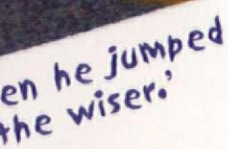 en he jumped
the wiser.'